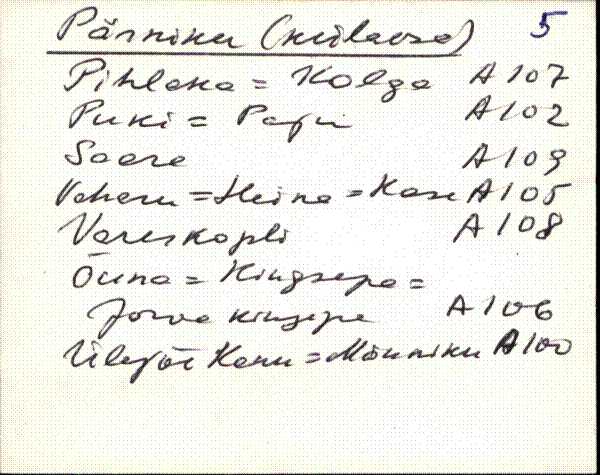 Pärniku (külaosa) 5
Pihlaka = Kolga A 107
Puki = Papi A 102
Saare A 109
Vaheru = Heina = Kase A 105
Vareskopli A 108
Õuna = Kingsepa =
Jorva kingsepa A 106
Ülejõe Kanu = Männiku A 100